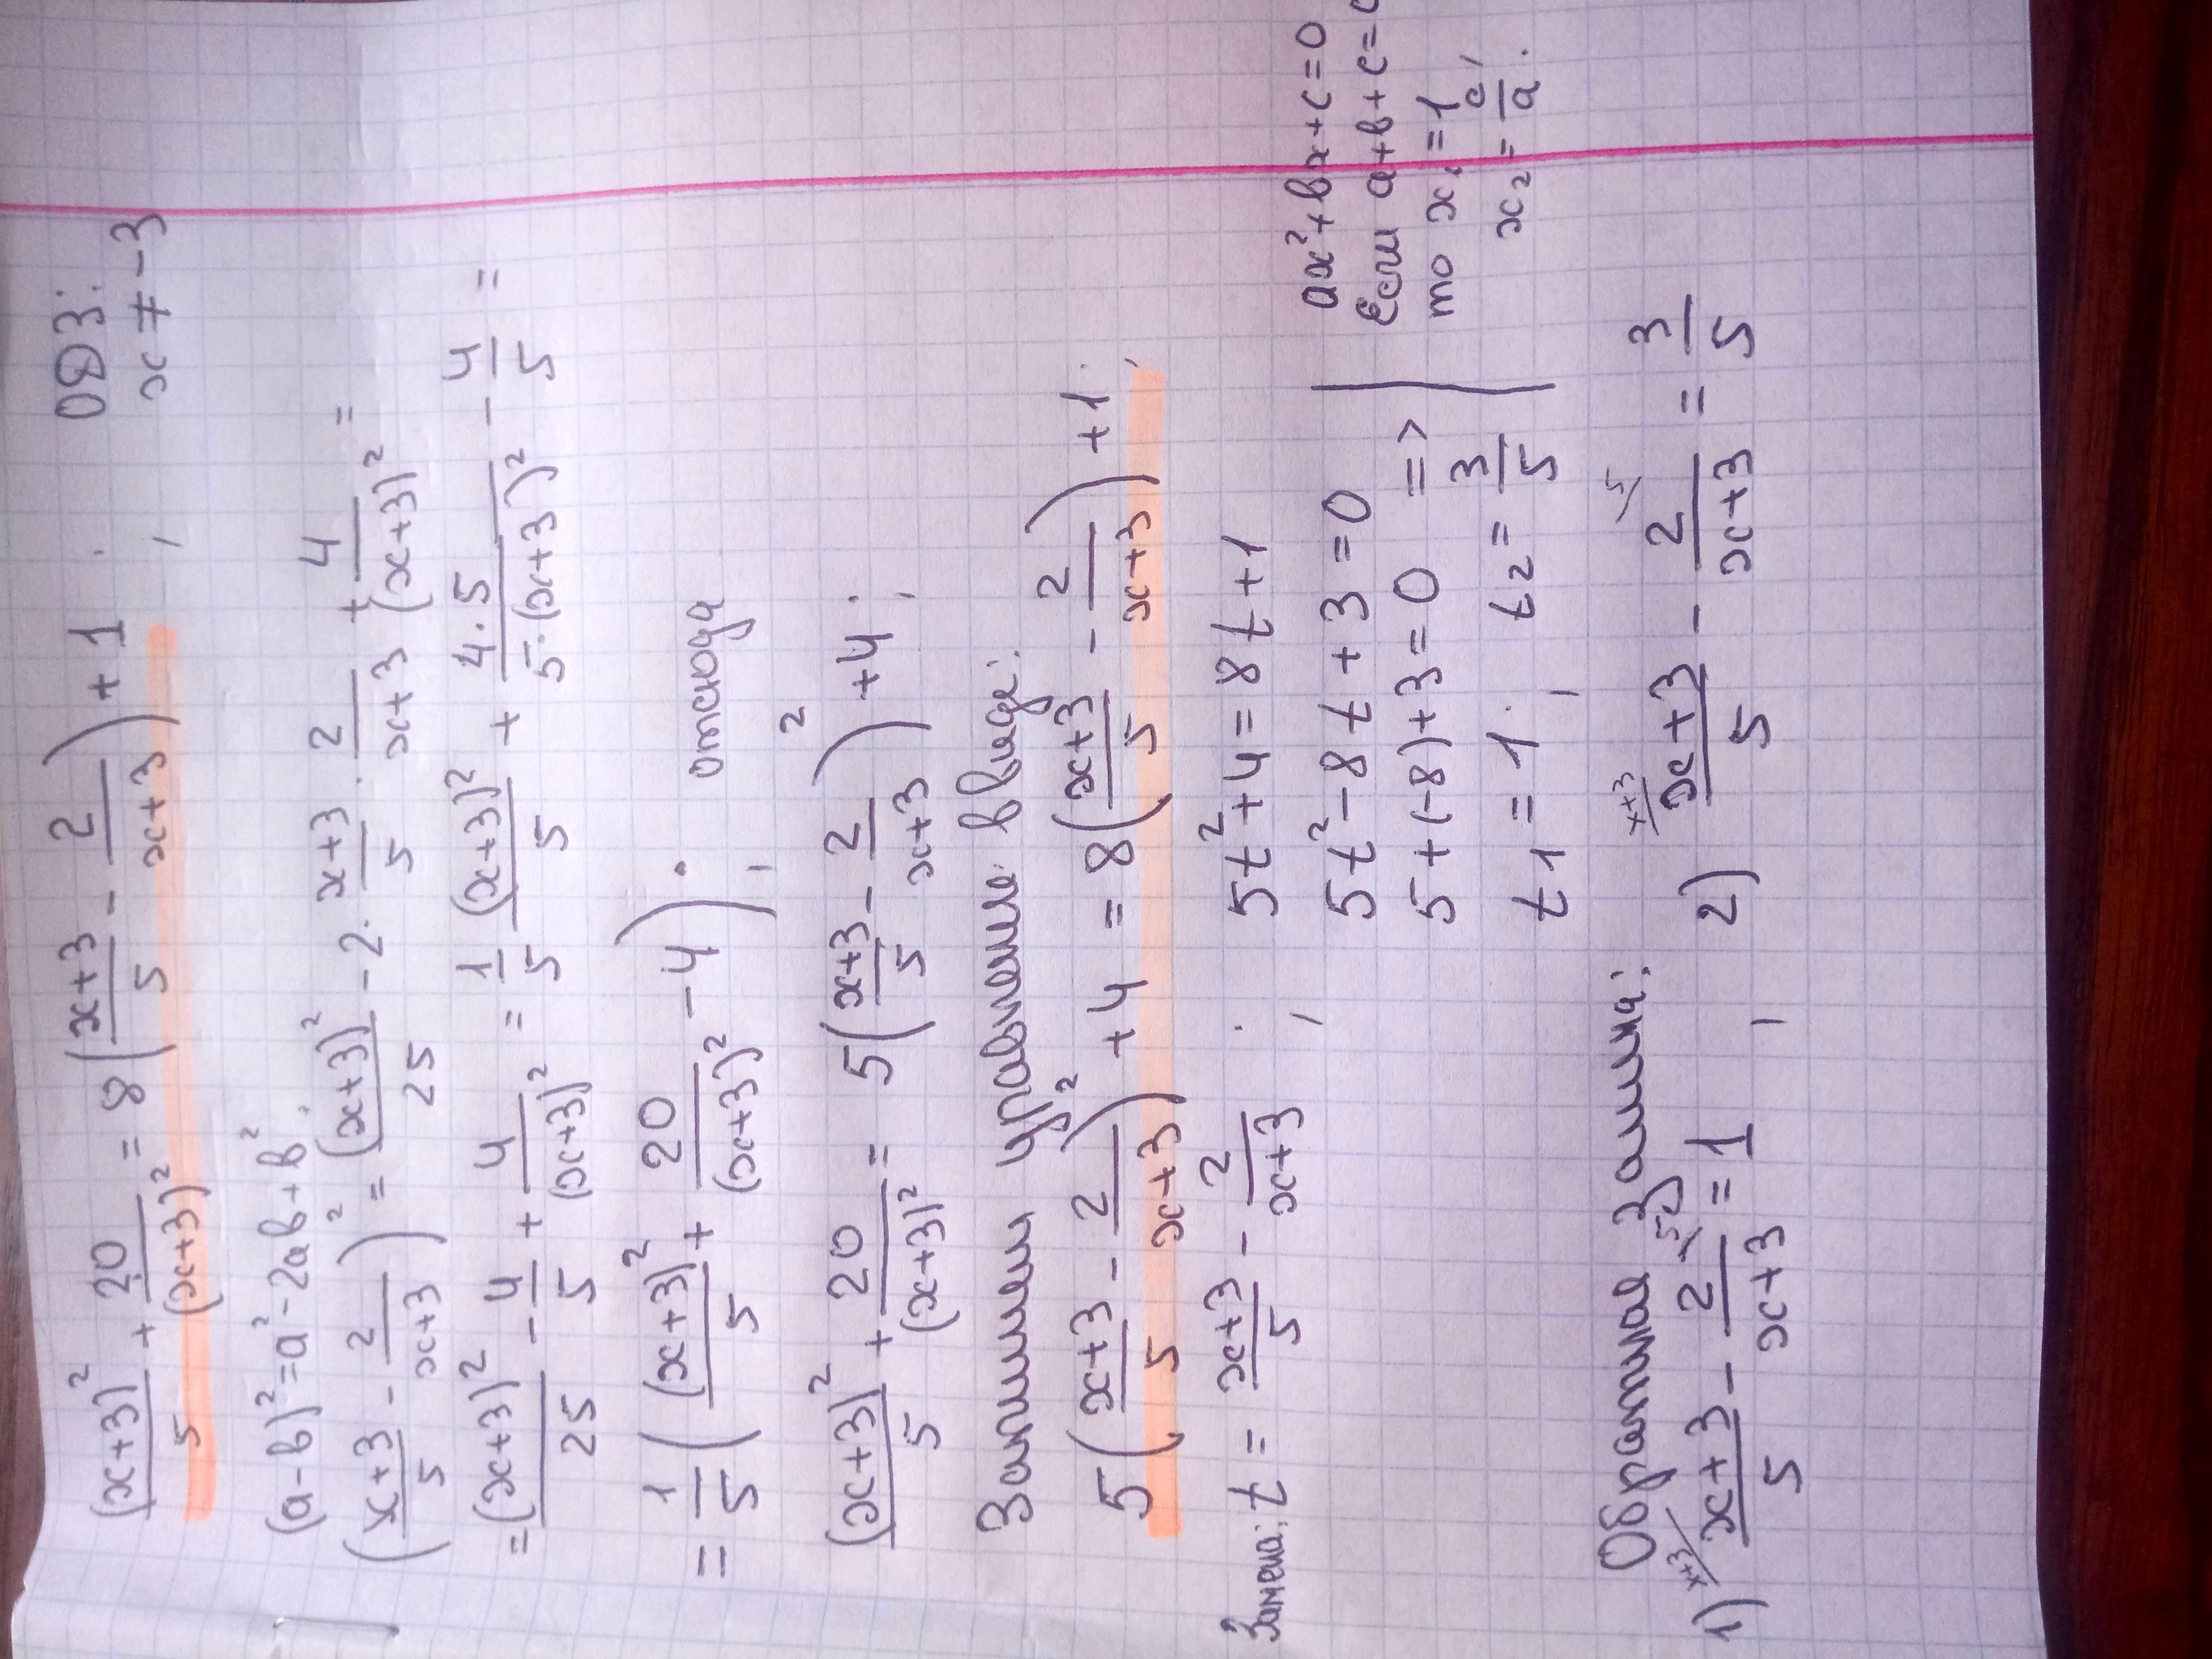 (x+3)²/5 + 20/(x+3)² = 8((x+3)/5 - 2/(x+3)) + 1 ; ОДЗ:
x ≠ -3
(a-b)² = a² - 2ab + b² ;
((x+3)/5 - 2/(x+3))² = (x+3)²/25 - 2 · (x+3)/5 · 2/(x+3) + 4/(x+3)² =
= (x+3)²/25 - 4/5 + 4/(x+3)² = 1/5 (x+3)²/5 + 4·5/(5·(x+3)²) - 4/5 =
= 1/5 ((x+3)²/5 + 20/(x+3)² - 4) ; отсюда
(x+3)²/5 + 20/(x+3)² = 5((x+3)/5 - 2/(x+3))² + 4 ;
Запишем уравнение в виде:
5((x+3)/5 - 2/(x+3))² + 4 = 8((x+3)/5 - 2/(x+3)) + 1 ;
Замена: t = (x+3)/5 - 2/(x+3) ; 5t² + 4 = 8t + 1
5t² - 8t + 3 = 0
5 + (-8) + 3 = 0 =>
t₁ = 1 ; t₂ = 3/5
ax² + bx + c = 0
Если a + b + c =
то x₁ = 1
x₂ = c/a .
Обратная замена:
1) (x+3)/5 - 2/(x+3) = 1 , 2) (x+3)/5 - 2/(x+3) = 3/5